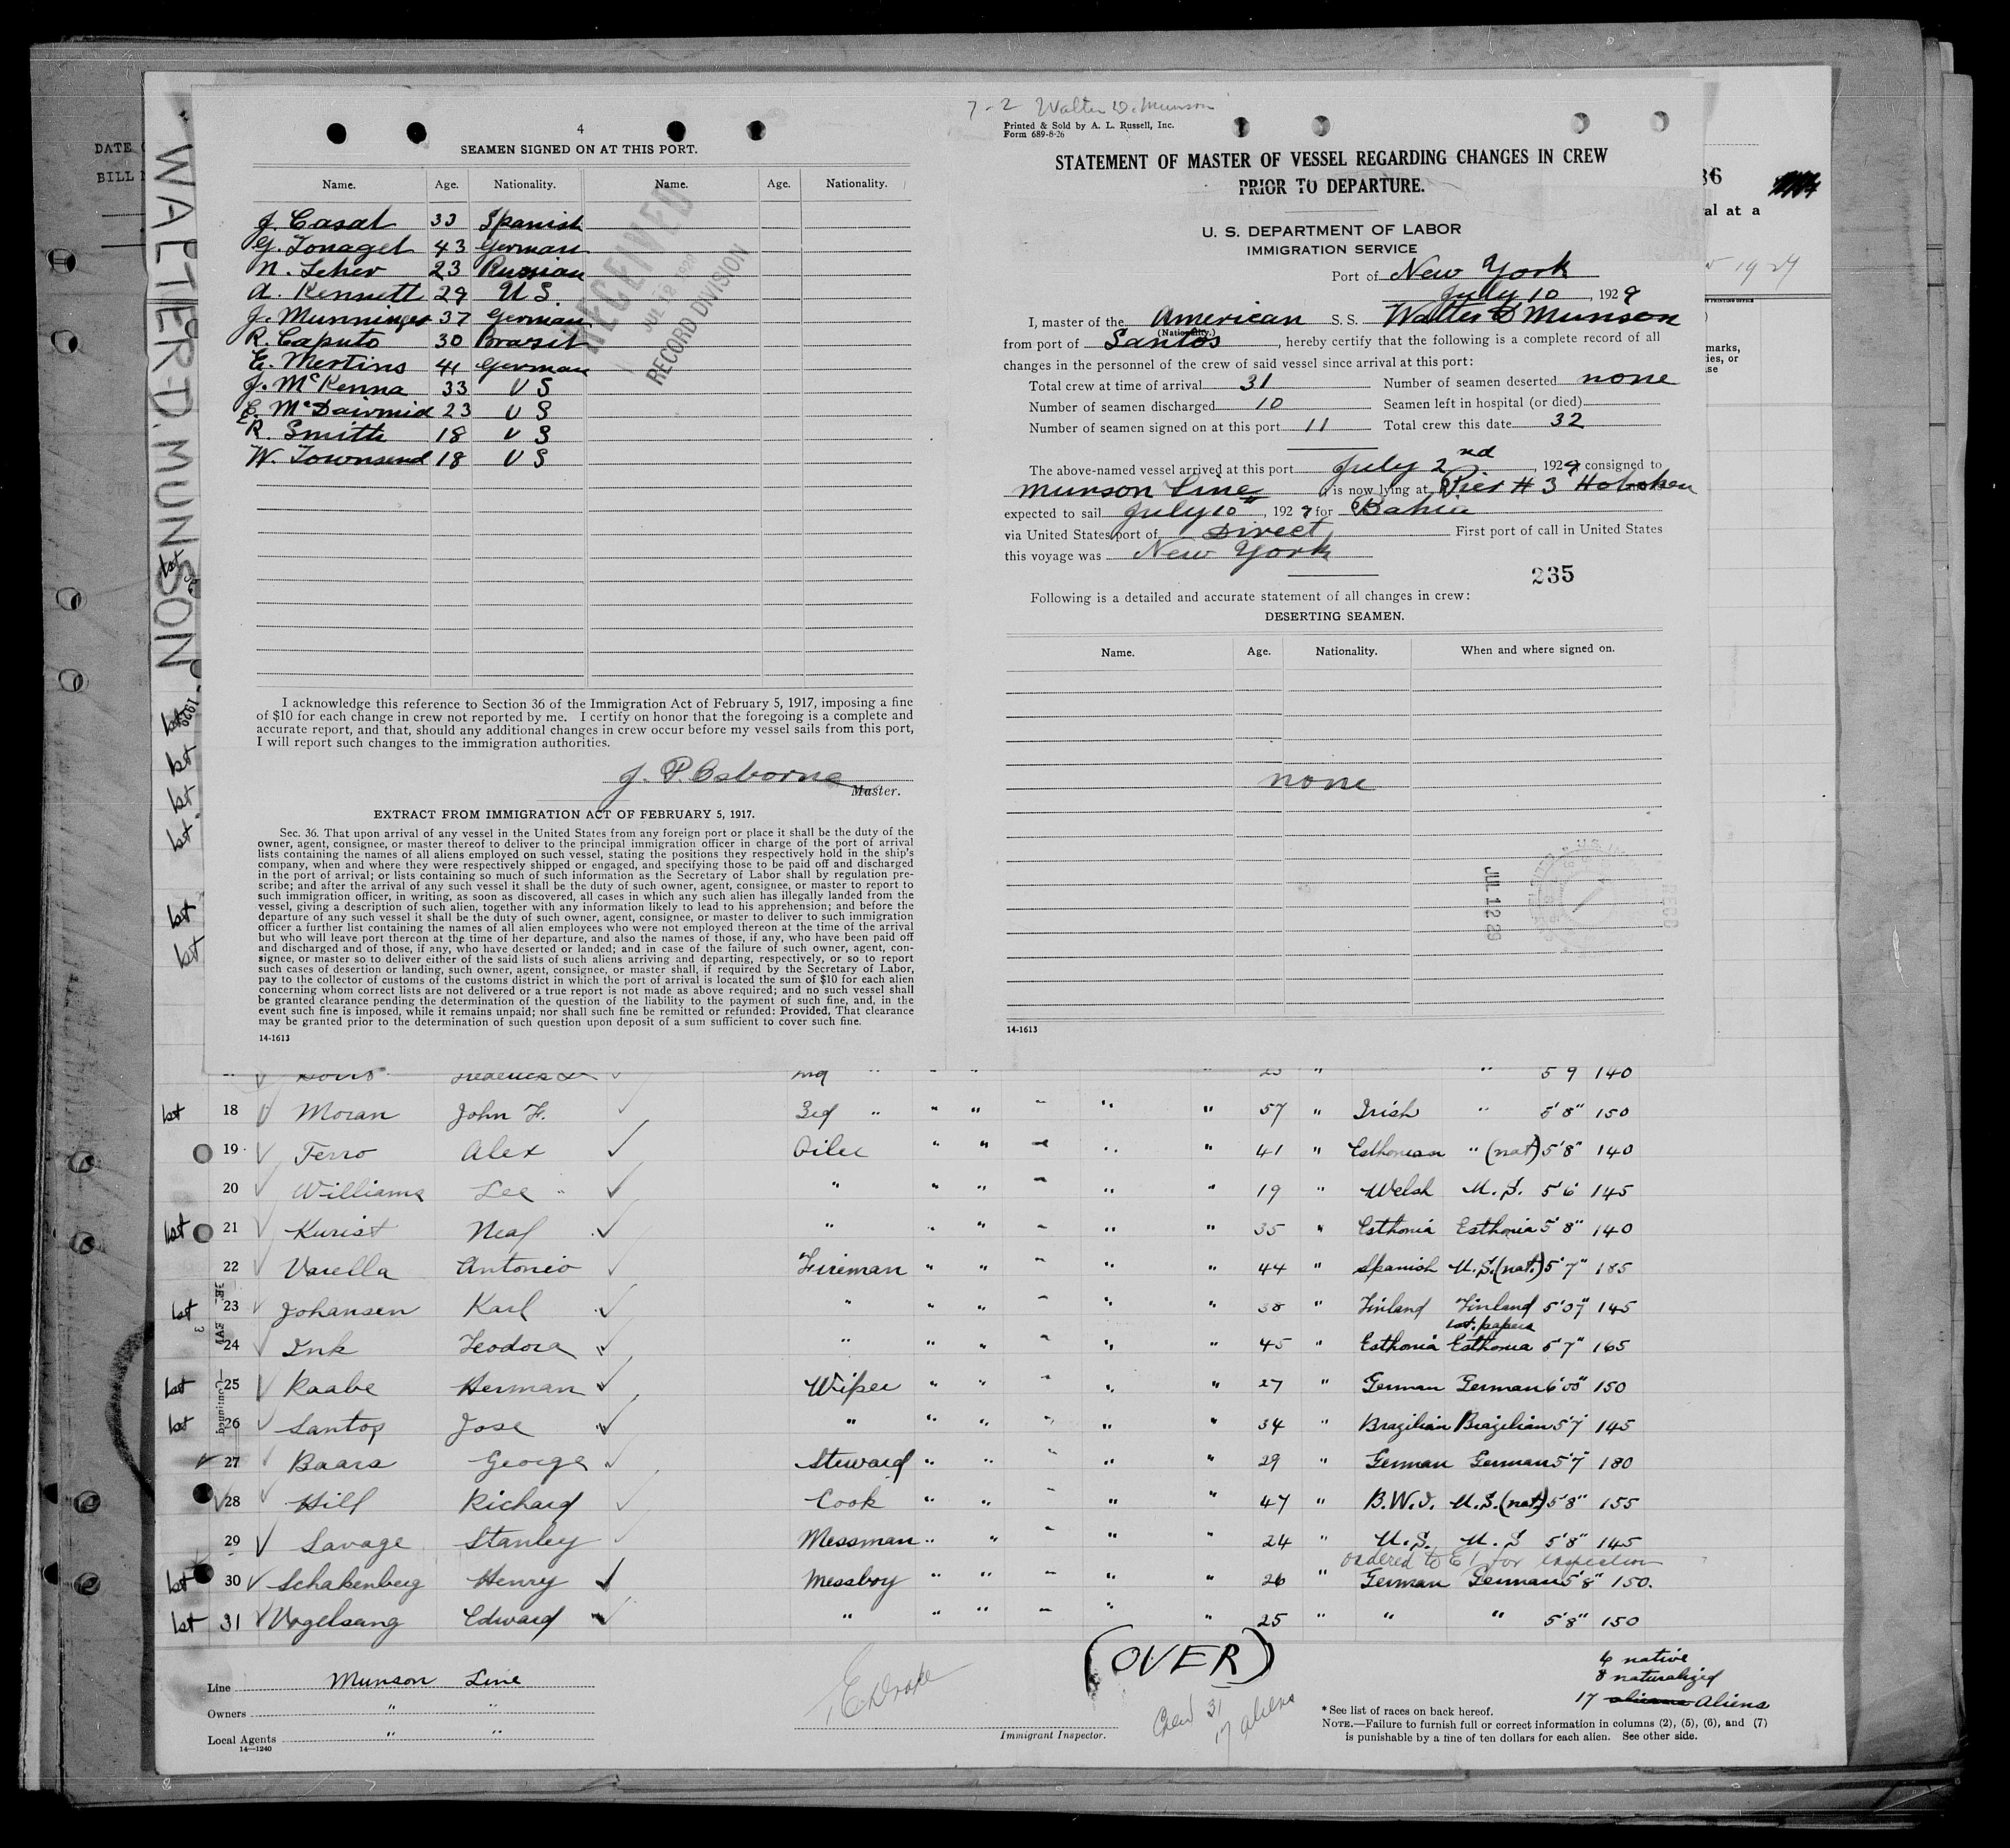 7-2 Walter D. Munson
4
SEAMEN SIGNED ON AT THIS PORT.
Name. Age. Nationality. Name. Age. Nationality.
J. Casal 33 Spanish
43 German
N. Scher 23 Russian
A. Kennett 29 U S.
J. Munninger 37 German
R. Caputo 30 Brazil
E. Mertins 41 German
J. McKenna 33 U S
E. McDairmid 23 U S
R. Smith 18 U S
W. Townsend 18 U S
RECEIVED
JUL 12
RECORD DIVISION
I acknowledge this reference to Section 36 of the Immigration Act of February 5, 1917, imposing a fine
of $10 for each change in crew not reported by me. I certify on honor that the foregoing is a complete and
accurate report, and that, should any additional changes in crew occur before my vessel sails from this port,
I will report such changes to the immigration authorities.
J. P. Osborne
Master.
EXTRACT FROM IMMIGRATION ACT OF FEBRUARY 5, 1917.
Sec. 36. That upon arrival of any vessel in the United States from any foreign port or place it shall be the duty of the
owner, agent, consignee, or master thereof to deliver to the principal immigration officer in charge of the port of arrival
lists containing the names of all aliens employed on such vessel, stating the positions they respectively hold in the ship's
company, when and where they were respectively shipped or engaged, and specifying those to be paid off and discharged
in the port of arrival; or lists containing so much of such information as the Secretary of Labor shall by regulation pre-
scribe; and after the arrival of any such vessel it shall be the duty of such owner, agent, consignee, or master to report to
such immigration officer, in writing, as soon as discovered, all cases in which any such alien has illegally landed from the
vessel, giving a description of such alien, together with any information likely to lead to his apprehension; and before the
departure of any such vessel it shall be the duty of such owner, agent, consignee, or master to deliver to such immigration
officer a further list containing the names of all alien employees who were not employed thereon at the time of the arrival
but who will leave port thereon at the time of her departure, and also the names of those, if any, who have been paid off
and discharged and of those, if any, who have deserted or landed; and in case of the failure of such owner, agent, con-
signee, or master so to deliver either of the said lists of such aliens arriving and departing, respectively, or so to report
such cases of desertion or landing, such owner, agent, consignee, or master shall, if required by the Secretary of Labor,
pay to the collector of customs of the customs district in which the port of arrival is located the sum of $10 for each alien
concerning whom correct lists are not delivered or a true report is not made as above required; and no such vessel shall
be granted clearance pending the determination of the question of the liability to the payment of such fine, and, in the
event such fine is imposed, while it remains unpaid; nor shall such fine be remitted or refunded: Provided, That clearance
may be granted prior to the determination of such question upon deposit of a sum sufficient to cover such fine.
14-1613
Printed & Sold by A. L. Russell, Inc.
Form 689-8-26
STATEMENT OF MASTER OF VESSEL REGARDING CHANGES IN CREW
PRIOR TO DEPARTURE.
U. S. DEPARTMENT OF LABOR
IMMIGRATION SERVICE
Port of New York
July 10, 1929
I, master of the American S. S. Walter D Munson
(Nationality.)
from port of Santos, hereby certify that the following is a complete record of all
changes in the personnel of the crew of said vessel since arrival at this port:
Total crew at time of arrival 31 Number of seamen deserted none
Number of seamen discharged 10 Seamen left in hospital (or died)
Number of seamen signed on at this port 11 Total crew this date 32
The above-named vessel arrived at this port July 2nd, 1929 consigned to
Munson Line, is now lying at Pier # 3 Hoboken
expected to sail July 10", 1929 for Bahia
via United States port of Direct First port of call in United States
this voyage was New York
235
Following is a detailed and accurate statement of all changes in crew:
DESERTING SEAMEN.
Name. Age. Nationality. When and where signed on.
none
JUL 12 29
14-1613
WALTER D. MUNSON
DATE
BILL
36
val at a
1929
marks,
ties, or
5 9 140
1st 18 Moran John F. 3rd " " " - " " 57 " Irish " 5'8" 150
19 Ferro Alex Oiler " " - " " 41 " Esthonian " (nat) 5'8" 140
20 Williams Lee " " " - " " 19 " Welsh U.S. 5'6 145
1st 21 Kurist Neal " " " - " " 35 " Esthonia Esthonia 5'8" 140
22 Varella Antonio Fireman " " - " " 44 " Spanish U.S.(nat.) 5'7" 185
1st 23 Johansen Karl " " " - " " 38 " Finland Finland 5'07" 145
1st. papers
24 Ink Teodora " " " - " " 45 " Esthonia Esthonia 5'7" 165
1st 25 Raabe Herman Wiper " " - " " 27 " German German 6'00" 150
1st 26 Santos Jose " " " - " " 34 " Brazilian Brazilian 5'7" 145
27 Baars George Steward " " - " " 29 " German German 5'7" 180
28 Hill Richard Cook " " - " " 47 " B.W.I. U.S.(nat) 5'8" 155
29 Savage Stanley Messman " " - " " 24 " U.S. U.S 5'8" 145
ordered to E I for inspection
1st 30 Schakenberg Henry Messboy " " - " " 26 " German German 5'8" 150.
1st 31 Vogelsang Edward " " " - " " 25 " " " 5'8" 150
(OVER)
6 native
8 naturalized
17 Aliens
Line Munson Line
Owners " "
Local Agents " "
14-1240
Immigrant Inspector.
Crew 31
17 aliens
* See list of races on back hereof.
NOTE.—Failure to furnish full or correct information in columns (2), (5), (6), and (7)
is punishable by a fine of ten dollars for each alien. See other side.